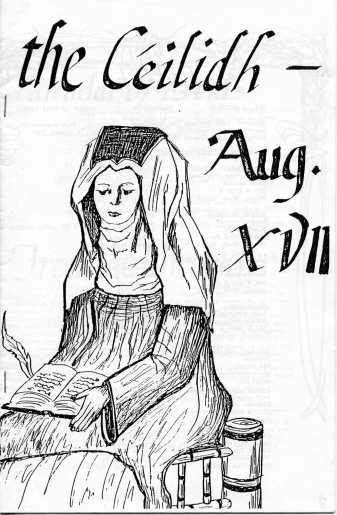 the Céilidh –
Aug.
XVII